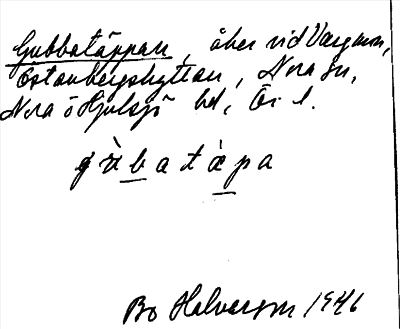 Gubbatäppan, åker vid Vargmon,
Östanbergshyttan, Nora sn,
Nora o Hjulsjö bd, Ör l.
gùbatàpa
Bo Halvarson 1946